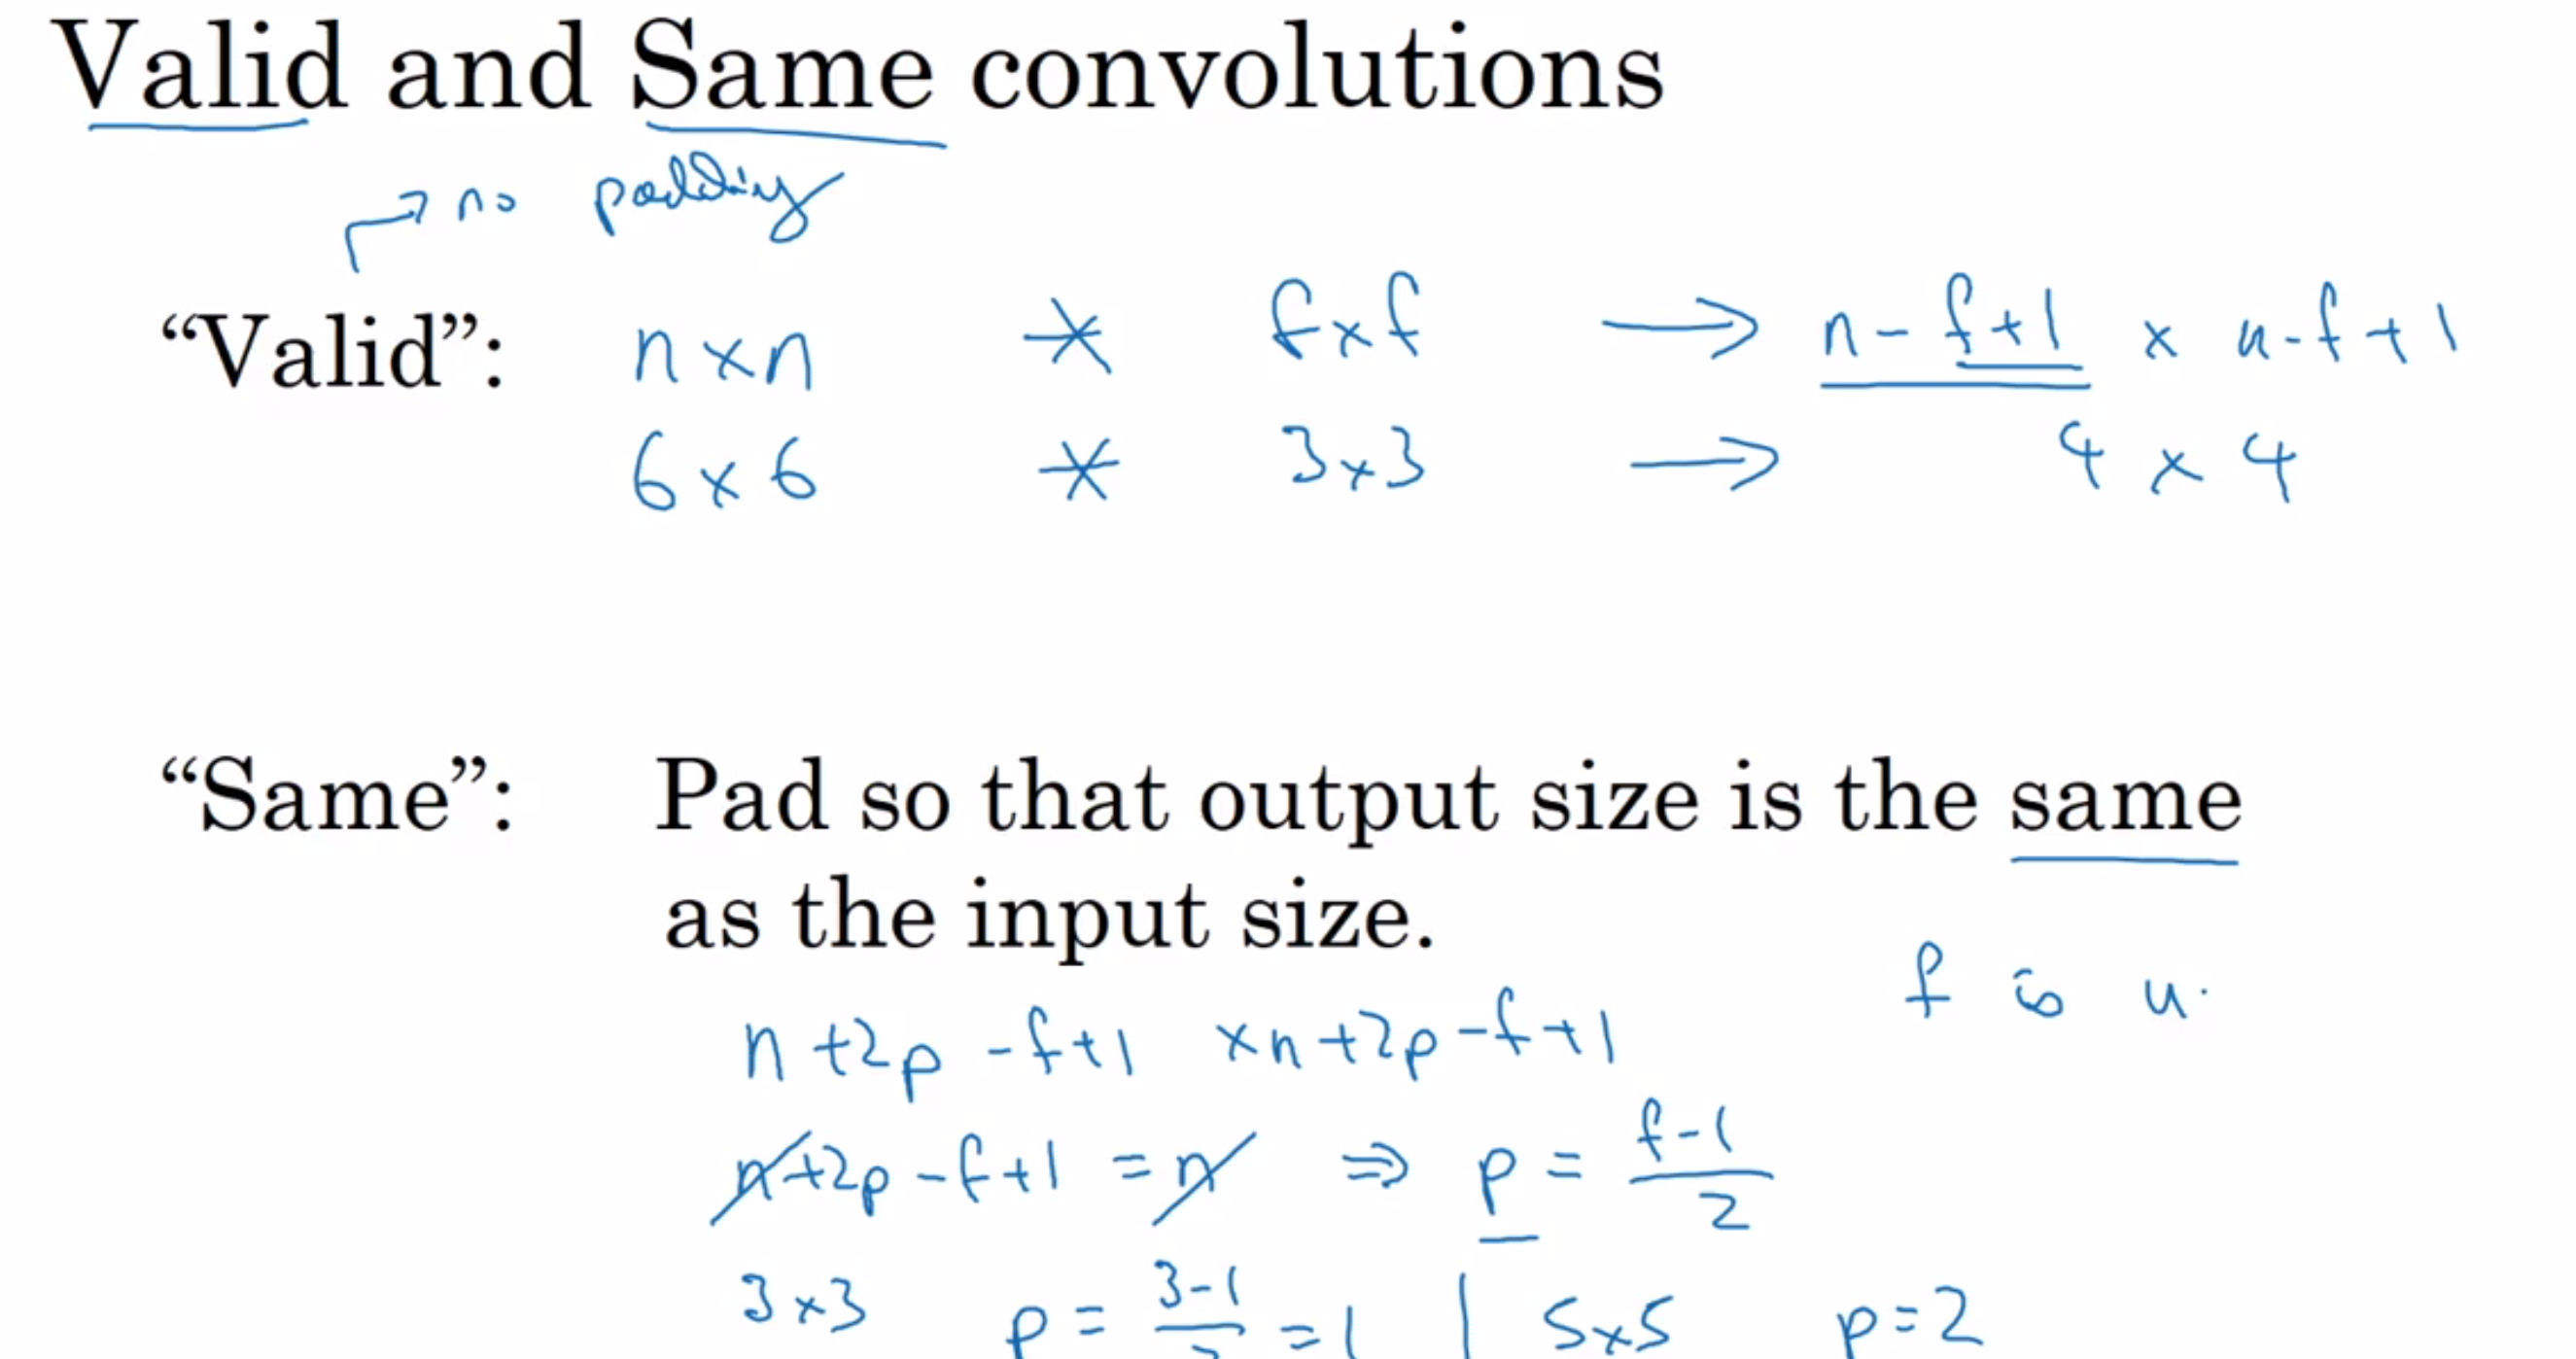 Valid and Same convolutions
→ no padding
“Valid”: n × n * f × f → n - f + 1 × n - f + 1
6 × 6 * 3 × 3 → 4 × 4
“Same”: Pad so that output size is the same
as the input size.
f is u.
n + 2p - f + 1 × n + 2p - f + 1
n + 2p - f + 1 = n ⇒ p = (f - 1)/2
3 × 3 p = (3 - 1)/2 = 1 | 5 × 5 p = 2